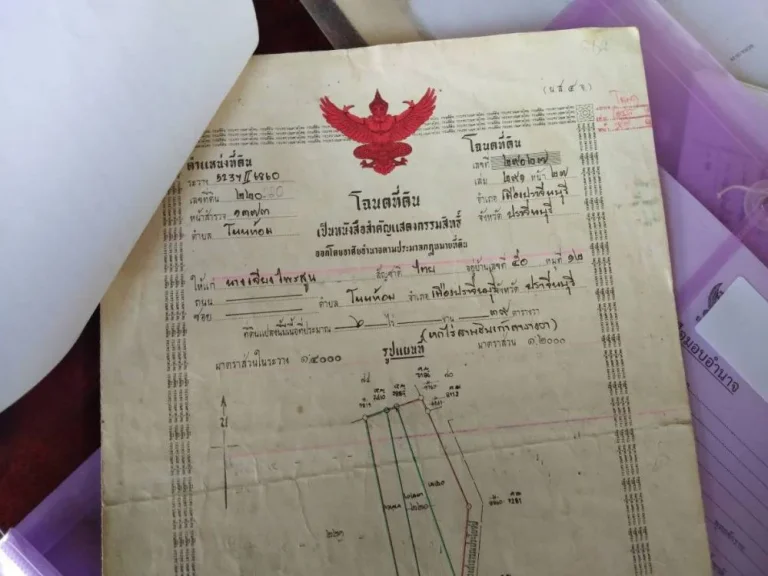 (น.ส.๔ จ.)
ตำแหน่งที่ดิน
โฉนดที่ดิน
ระวาง 5237 II 6860
เลขที่ ๒๙๑๒๗
เลขที่ดิน ๒๒๐
เล่ม ๒๙๑ หน้า ๒๗
หน้าสำรวจ ๑๓๗๓
อำเภอ เมืองปราจีนบุรี
ตำบล โนนห้อม
จังหวัด ปราจีนบุรี
โฉนดที่ดิน
เป็นหนังสือสำคัญแสดงกรรมสิทธิ์
ออกโดยอาศัยอำนาจตามประมวลกฎหมายที่ดิน
ให้แก่ สัญชาติ ไทย อยู่บ้านเลขที่ ๕๐ หมู่ที่ ๑๒
ถนน
ซอย ตำบล โนนห้อม อำเภอ เมืองปราจีนบุรี จังหวัด ปราจีนบุรี
ที่ดินแปลงนี้มีเนื้อที่ประมาณ ๖ ไร่ งาน ๓๙ ตารางวา
(หกไร่สามสิบเก้าตารางวา)
มาตราส่วนในระวาง ๑:๔๐๐๐
รูปแผนที่
มาตราส่วน ๑:๒๐๐๐
น
๒๒๐
มอบอำนาจ